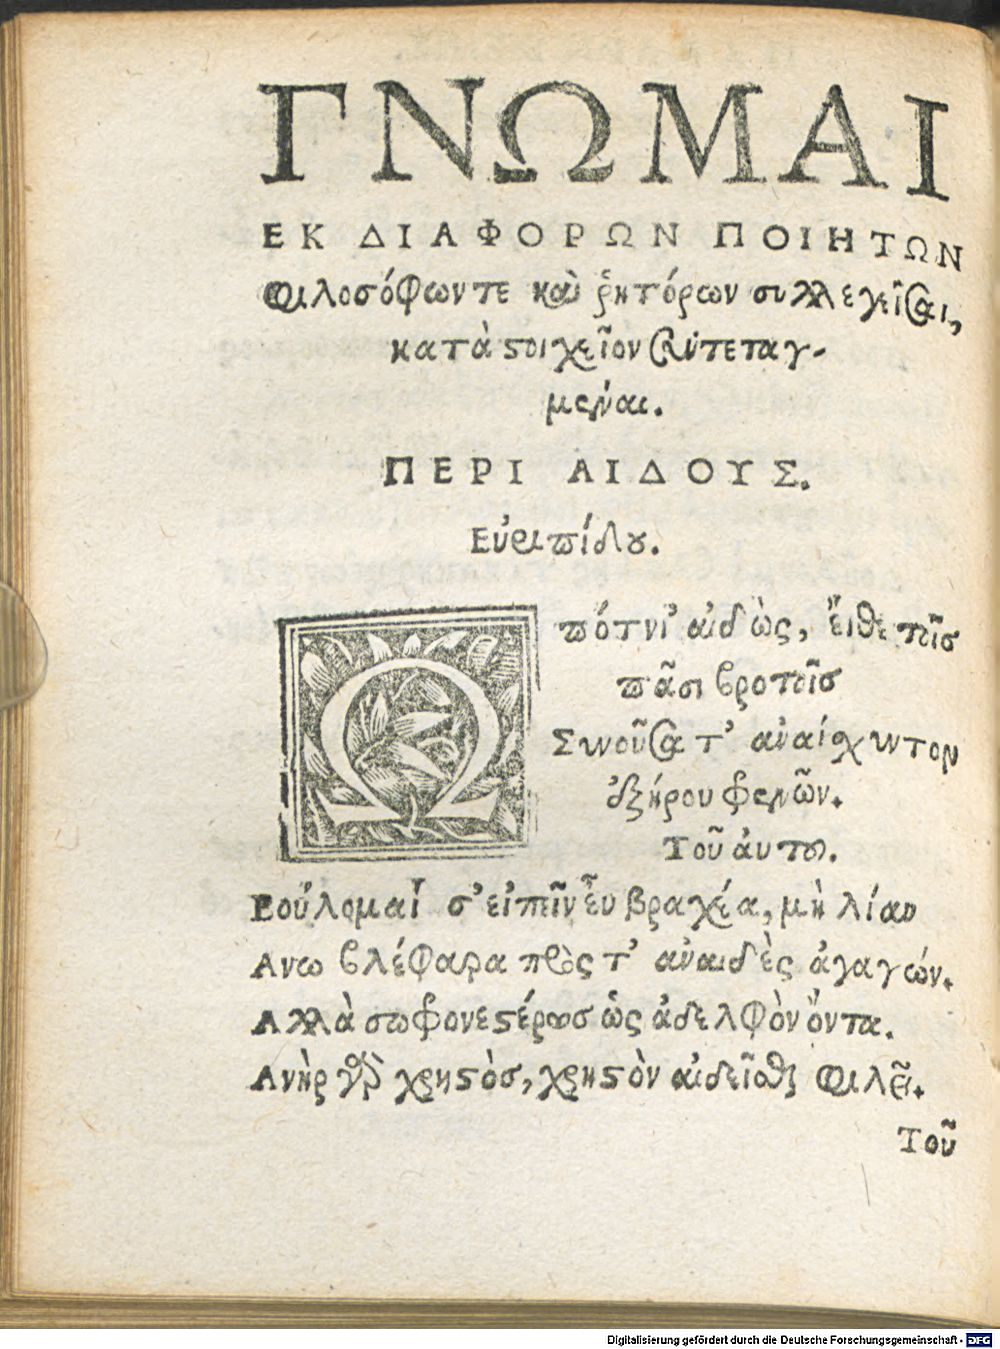 ΓΝΩΜΑΙ
ΕΚ ΔΙΑΦΟΡΩΝ ΠΟΙΗΤΩΝ
φιλοσόφωντε καὶ ῥητόρων συλλεγεῖσαι,
κατὰ στοιχεῖον συντεταγ-
μέναι.
ΠΕΡΙ ΑΙΔΟΥΣ.
Εὐριπίδου.
Ω πότνι' αἰδὼς, εἴθε τοῖς
πᾶσι βροτοῖς
Συνοῦσα τ' ἀναίσχυντον
ἐξήρου φρενῶν.
Τοῦ ἀυτοῦ.
Βούλομαί σ' εἰπεῖν εὖ βραχέα, μὴ λίαν
Ανω βλέφαρα πρὸς τ' ἀναιδὲς ἀγαγών.
Αλλὰ σωφρονεστέρως ὡς ἀδελφὸν ὄντα.
Ανὴρ γὰρ χρηστὸς, χρηστὸν αἰδεῖσθαι φιλεῖ.
Τοῦ
Digitalisierung gefördert durch die Deutsche Forschungsgemeinschaft - DFG